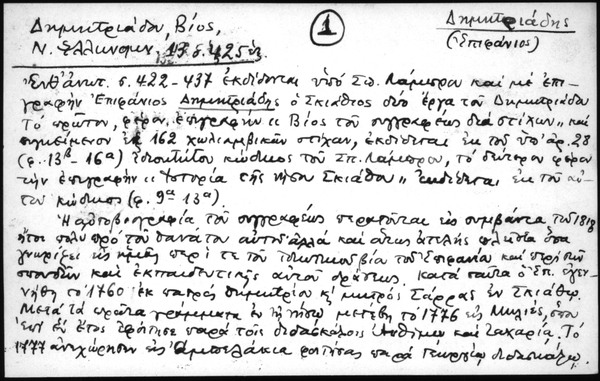 Δημητριάδου, Βίος,
Ν. Ἑλληνομν. 13 σ. 425 ἑξ.
1
Δημητριάδης
(Ἐπιφάνιος)
Ἐνθ' ἀνωτ. σ. 422-437 ἐκδίδονται ὑπὸ Σπ. Λάμπρου καὶ μὲ ἐπι-
γραφὴν Ἐπιφάνιος Δημητριάδης ὁ Σκιάθιος δύο ἔργα τοῦ Δημητριάδου
Τὸ πρῶτον, φέρον ἐπιγραφὴν "Βίος τοῦ συγγραφέως διὰ στίχων" καὶ
συγκείμενον ἐκ 162 χωλιαμβικῶν στίχων, ἐκδίδεται ἐκ τοῦ ὑπ' ἀρ. 28
(φ. 13β - 16α) κώδικος τοῦ Σπ. Λάμπρου, τὸ δεύτερον φέρον
τὴν ἐπιγραφὴν "Ἱστορία τῆς νήσου Σκιάθου" ἐκδίδεται ἐκ τοῦ αὐ-
τοῦ κώδικος (φ. 9α 13α).
Ἡ αὐτοβιογραφία τοῦ συγγραφέως περατοῦται εἰς συμβάντα τοῦ
ἤτοι πολὺ πρὸ τοῦ θανάτου αὐτοῦ ἀλλὰ καὶ οὕτως ἀτελὴς ὅσα
γνωρίζει εἰς ἡμᾶς περί τε τοῦ βίου τοῦ Ἐπιφανίου καὶ περὶ τῶν
σπουδῶν καὶ ἐκπαιδευτικῆς αὐτοῦ δράσεως. Κατὰ ταῦτα ὁ Ἐπ. ἐγεν-
νήθη τὸ 1760 ἐκ πατρὸς Δημητρίου κ' μητρὸς Σάρρας ἐν Σκιάθῳ.
Μετὰ τὰ πρῶτα γράμματα ἐν τῇ νήσῳ μετέβη τὸ 1776 εἰς Μηλιές, ὅπου
ἐπὶ ἓν ἔτος ἐφοίτησε παρὰ τοῖς διδασκάλοις Ἀνθίμῳ καὶ Ζαχαρίᾳ. Τὸ
1777 ἀνεχώρησεν εἰς Ἀμπελάκια φοιτήσας παρὰ Γεωργίῳ διδασκάλῳ.